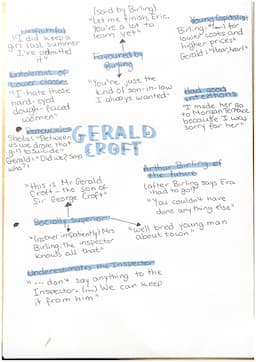 Unfaithful
"I did keep a
girl last summer
I've admitted
it"
(said by Birling)
"Let me finish, Eric.
You've a lot to
learn yet"
Favoured by
Birling
"You're just the
kind of son-in-law
I always wanted"
Young Capitalist
Birling: "(...) for
lower costs and
higher prices"
Gerald: "Hear, hear!"
lower classes
"I hate those
hard-eyed
dough-faced
women"
Had good
intentions
"I made her go
to Morgan Terrace
because I was
sorry for her"
Sheila: "Between
us we drove that
girl to suicide"
Gerald: "Did we? Says
who?"
GERALD
CROFT
Arthur Birling of
the future
(after Birling says Eva
had to go)
"You couldn't have
done anything else"
"this is Mr Gerald
Croft - the son of
Sir George Croft"
Socially Superior
"(rather impatiently) Mrs
Birling, the inspector
knows all that"
"well bred young man
about town"
Underestimates the Inspector
"... don't say anything to the
Inspector. (...) We can keep
it from him"